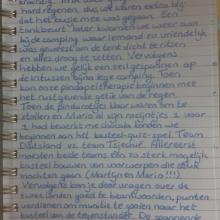 hand regenen, dus we waren extra blij
dat het busje mee was gegaan. Een
tankbeurt later kwamen we weer aan
bij de camping waar iemand zo vriendelijk
was geweest om de tent dicht te ritsen
en alles droog te zetten. Vervolgens
hebben we gelijk een zeil gespannen op
de intussen bijna lege camping. Toen
kon onze pindapeltherapie beginnen met
het rustgevende getik van de regen.
Toen de pindarotsjes klaar waren om te
stollen en Mario al zijn rotsjes's voor
had bewerkt mochten konden we
beginnen aan het kasteel-quiz-spel. Team
Duitsland vs. team Tsjechië. Allereerst
moesten beide teams een zo sterk mogelijk
kasteel bouwen van voorwerpen die stuk
mochten gaan (Martijn en Mario!!!)
Vervolgens kon je door vragen over de
twee landen goed te beantwoorden, punten
verdienen om munitie te gooien naar het
kasteel van de tegenstander. De spannende